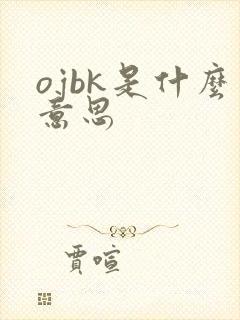 ojbk是什麼
意思
賈喧